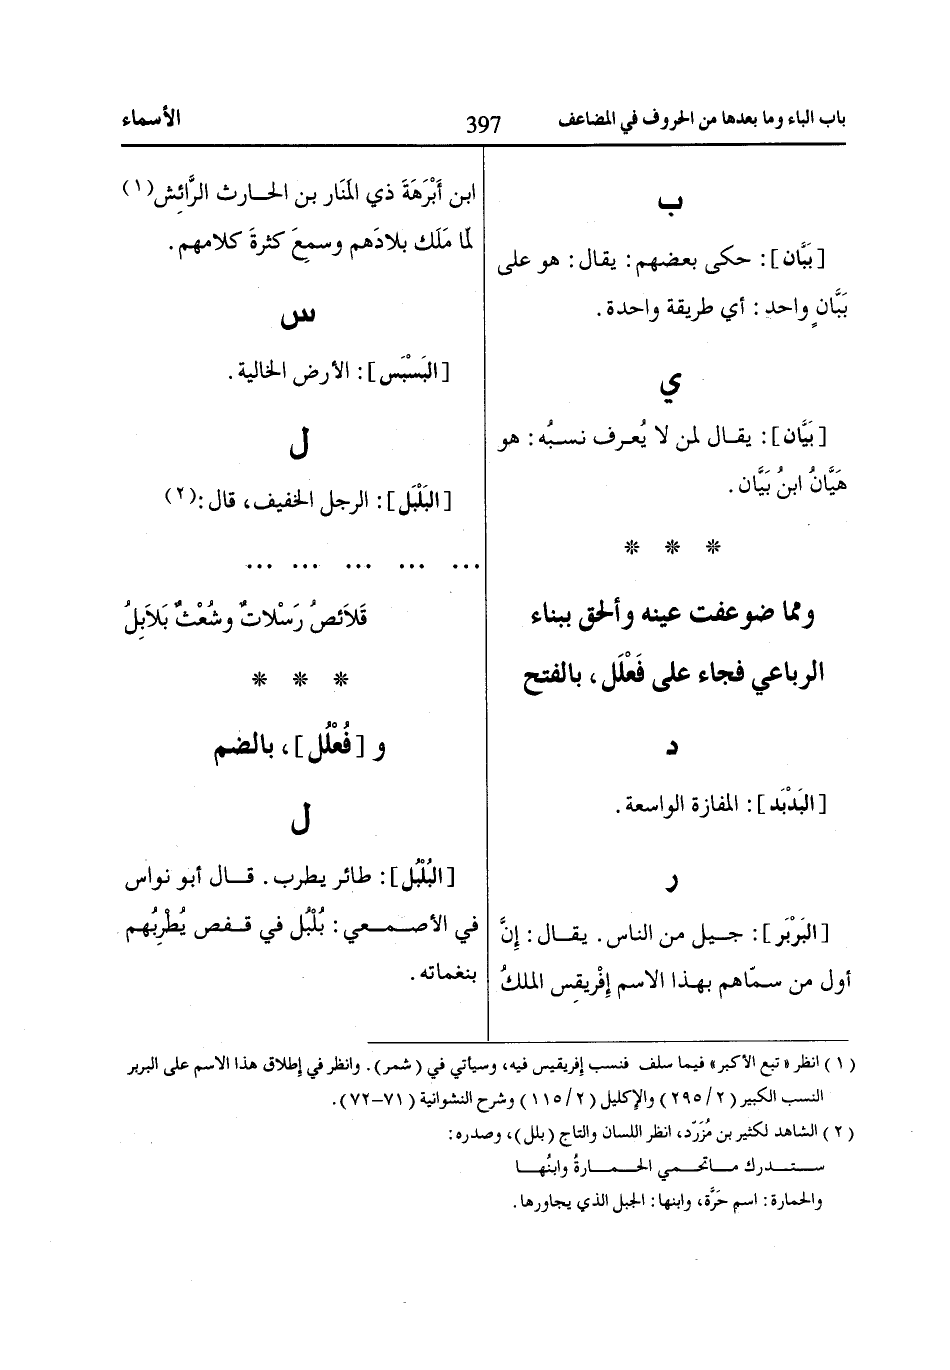 باب الباء وما بعدها من الحروف في المضاعف
397
الأسماء
ب
[بَبَّان]: حكى بعضهم: يقال: هو على
بَبَّانٍ واحد: أي طريقة واحدة.
ي
[بَيَّان]: يقال لمن لا يُعرف نسبُه: هو
هَيَّانُ ابنُ بَيَّان.
* * *
ومما ضوعفت عينه وألحق ببناء
الرباعي فجاء على فَعْلَل، بالفتح
د
[البَدْبَد]: المفازة الواسعة.
ر
[البَرْبَر]: جيل من الناس. يقال: إِنَّ
أول من سمّاهم بهذا الاسم إِفْرِيقِس الملكُ
ابن أَبْرَهَةَ ذي المَنَار بن الحارث الرَّائِش(١)
لمَّا مَلَك بلادَهم وسمِعَ كثرةَ كلامهم.
س
[البَسْبَس]: الأرض الخالية.
ل
[البَلْبَل]: الرجل الخفيف، قال:(٢)
... ... ... ... ...
قَلاَئصُ رَسْلاتٌ وشُعْثٌ بَلاَبِلُ
* * *
و [فُعْلُل]، بالضم
ل
[البُلْبُل]: طائر يطرب. قال أبو نواس
في الأصمعي: بُلْبُل في قفص يُطْرِبُهم
بنغماته.
(١) انظر «تبع الأكبر» فيما سلف فنسب إفريقيس فيه، وسيأتي في (شمر). وانظر في إطلاق هذا الاسم على البربر
النسب الكبير (٢/ ٢٩٥) والإكليل (٢/ ١١٥) وشرح النشوانية (٧١-٧٢).
(٢) الشاهد لكثير بن مُزَرّد، انظر اللسان والتاج (بلل)، وصدره:
ستدرك ماتحمي الحمارةُ وابنُها
والحمارة: اسم حَرَّة، وابنها: الجبل الذي يجاورها.